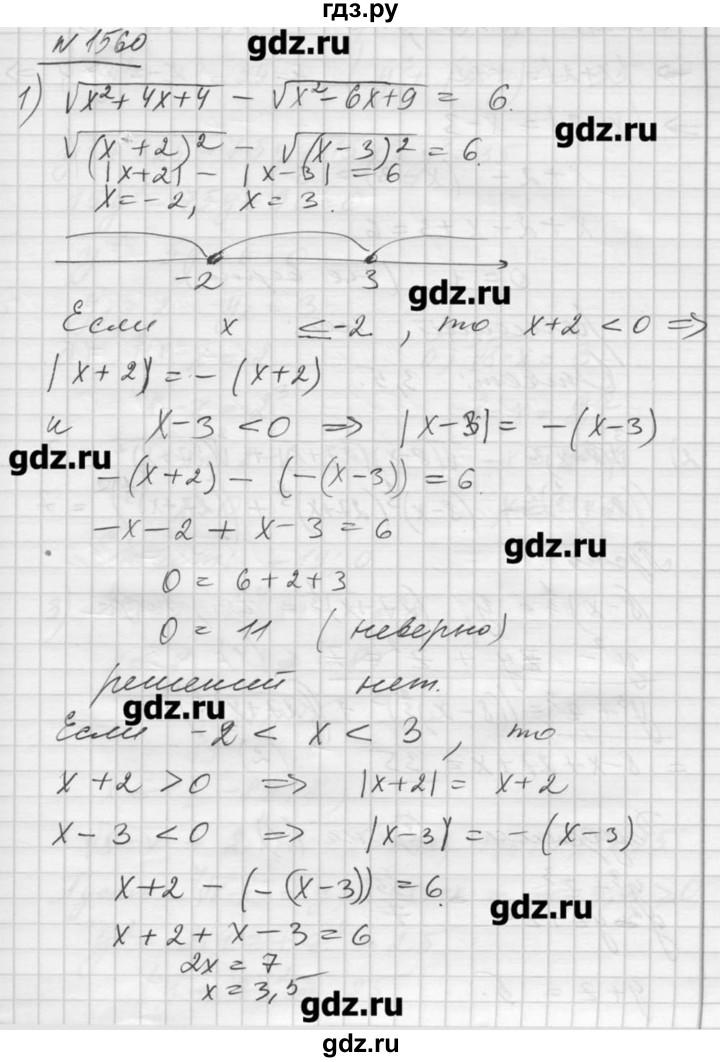 гдз.ру
N 1560
gdz.ru
1) √x²+4x+4 - √x²-6x+9 = 6.
gdz.ru
√(x+2)² - √(x-3)² = 6.
|x+2| - |x-3| = 6
x=-2, x=3.
-2 3
gdz.ru
Если x ≤-2, то x+2<0 ⇒
|x+2|=-(x+2)
и x-3<0 ⇒ |x-3|= -(x-3)
gdz.ru
-(x+2)-(-(x-3))=6.
-x-2+x-3=6
gdz.ru
0=6+2+3
0=11 (неверно)
решений нет.
gdz.ru
Если -2<x<3, то
x+2>0 ⇒ |x+2|=x+2
x-3<0 ⇒ |x-3|=-(x-3)
x+2-(-(x-3))=6.
gdz.ru
x+2+x-3=6
2x=7
x=3,5
gdz.ru
gdz.ru